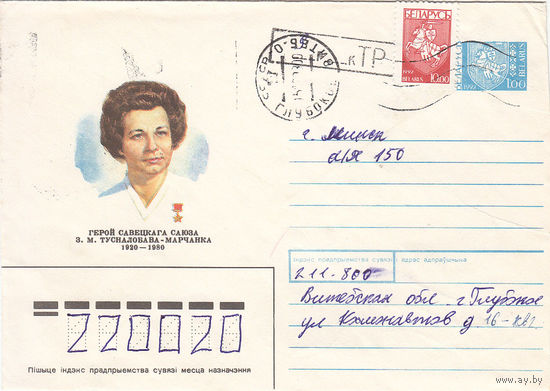 БЕЛАРУСЬ
1992 10.00
BELARUS
БЕЛАРУСЬ
1992
BELARUS
1.00
к ТР
ГЛУБОКОЕ
г. Минск
а/я 150
ГЕРОЙ САВЕЦКАГА САЮЗА
З. М. ТУСНАЛОБАВА-МАРЧАНКА
1920–1980
Індэкс прадпрыемства сувязі і адрас адпраўшчыка
211-800
Витебская обл. г Глубокое
ул д 16-кв
220020
Пішыце індэкс прадпрыемства сувязі месца назначэння
© www.ay.by